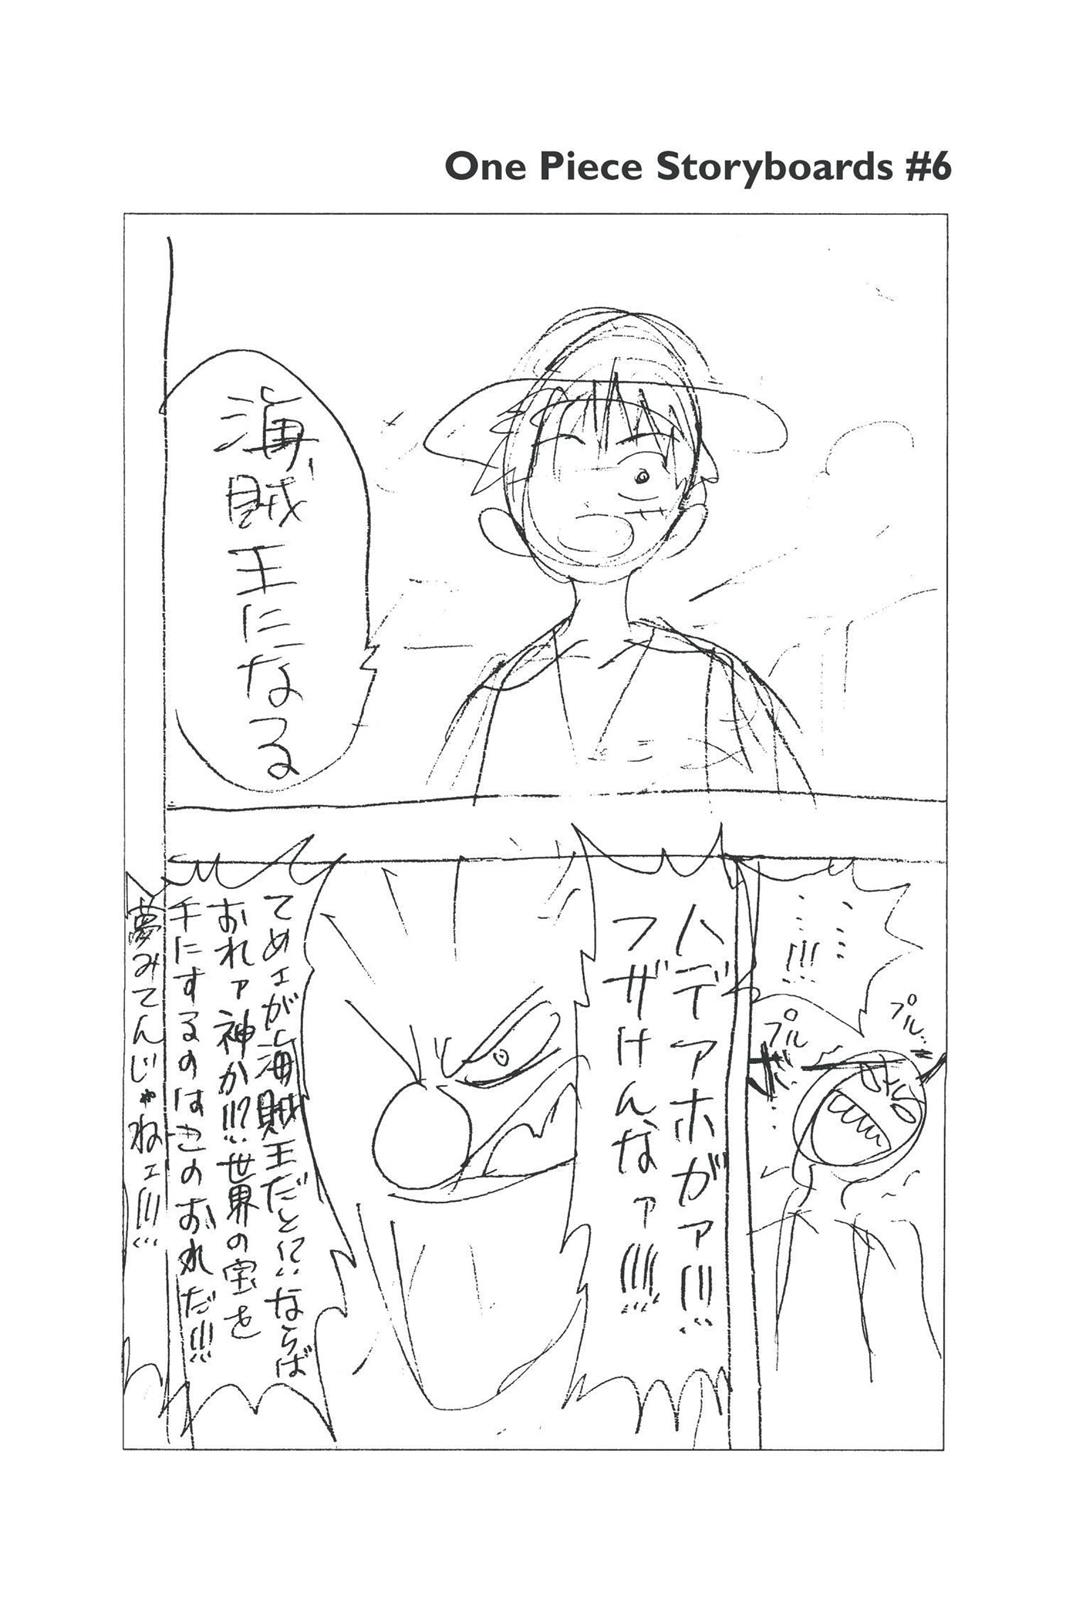 One Piece Storyboards #6
海賊王になる
…!!!
プル
プル
ハデアホがァ!!!
フザけんなァ!!!!
てめェが海賊王だと!?ならば
おれァ神か!!!?世界の宝を
手にするのはこのおれだ!!!
夢みてんじゃねェ!!!